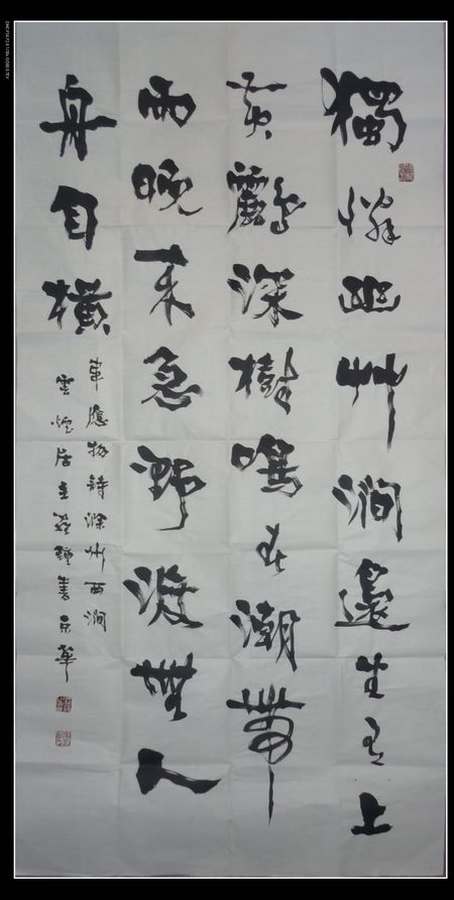 獨憐幽艸澗邊生有上
黃鸝深樹鳴春潮帶
雨晚来急野渡無人
舟自橫
韋應物詩滁州西澗
雲煙居主書京華